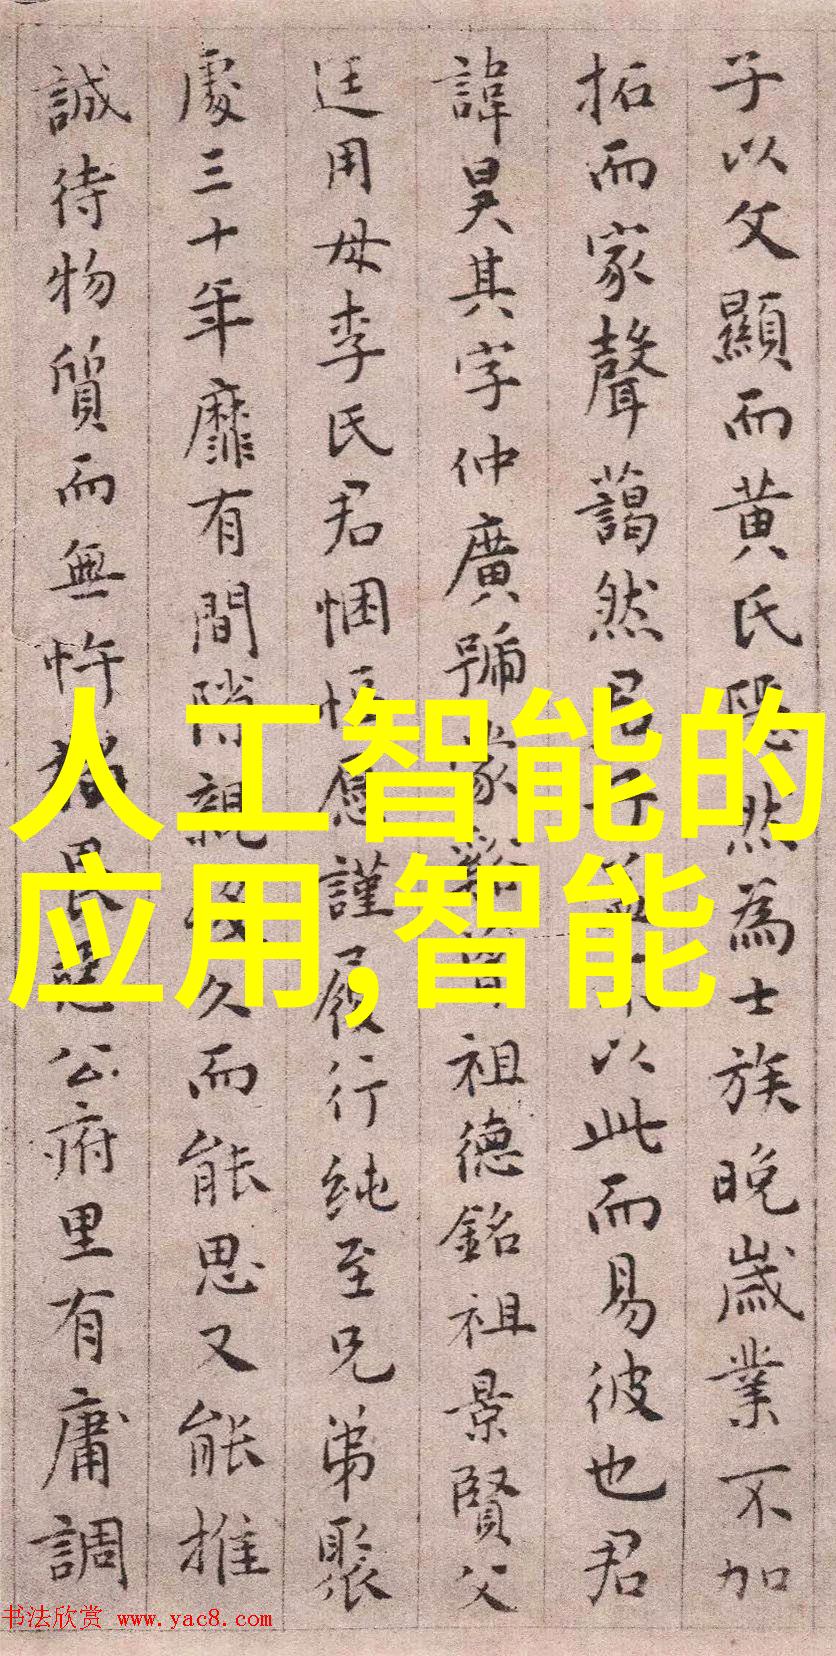 子以父顯而黄氏隱然為士族晚歲業不加
拓而家聲藹然君子不以此而易彼也君
諱昊其字仲廣號蒙谿祖德銘祖景賢父
廷用母李氏君悃愊愿謹履行純至兄弟聚
處三十年靡有間隙親久而能思又能推
誠待物質而無忤猶畏公府里有庸調
人工智能的
应用,智能
书法欣赏 www.yac8.com